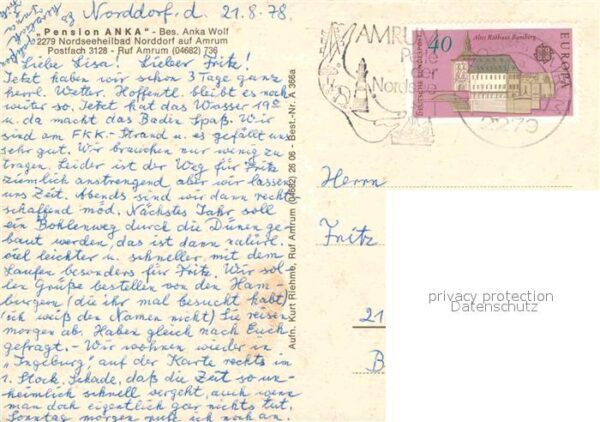 Norddorf, d. 21.8.78.
"Pension ANKA" - Bes. Anka Wolf
2279 Nordseeheilbad Norddorf auf Amrum
Postfach 3128 - Ruf Amrum (04682) 736
Liebe Lisa! Lieber Fritz!
Jetzt haben wir schon 3 Tage ganz
herrl. Wetter. Hoffentl. bleibt es noch
weiter so. Jetzt hat das Wasser 19°
u. da macht das Baden Spaß. Wir
sind am FKK-Strand u. es gefällt uns
sehr gut. Wir brauchen nur wenig zu
tragen. Leider ist der Weg für Fritz
ziemlich anstrengend aber wir lassen
uns Zeit. Abends sind wir dann recht-
schaffend müd. Nächstes Jahr soll
ein Bohlenweg durch die Dünen ge-
baut werden, das ist dann natürl.
viel leichter u. schneller mit dem
Laufen besonders für Fritz. Wir sol-
len Grüße bestellen von den Ham-
burgern (die ihr mal besucht habt)
(ich weiß den Namen nicht) Sie reisen
morgen ab. Haben gleich nach Euch
gefragt. - Wir wohnen wieder in
"Ingeburg", auf der Karte rechts im
1. Stock. Schade, daß die Zeit so un-
heimlich schnell vergeht, auch wenn
man doch eigentlich gar nichts tut.
Sonntag morgen rufe ich noch an.
Aufn. Kurt Riehme, Ruf Amrum (04682) 26 06 - Best.-Nr. A 366a
AMRUM
Perle
der
Nordsee
40
Altes Rathaus Bamberg
EUROPA
DEUTSCHE BUNDESPOST
Herrn
Fritz
21
B
privacy protection
Datenschutz